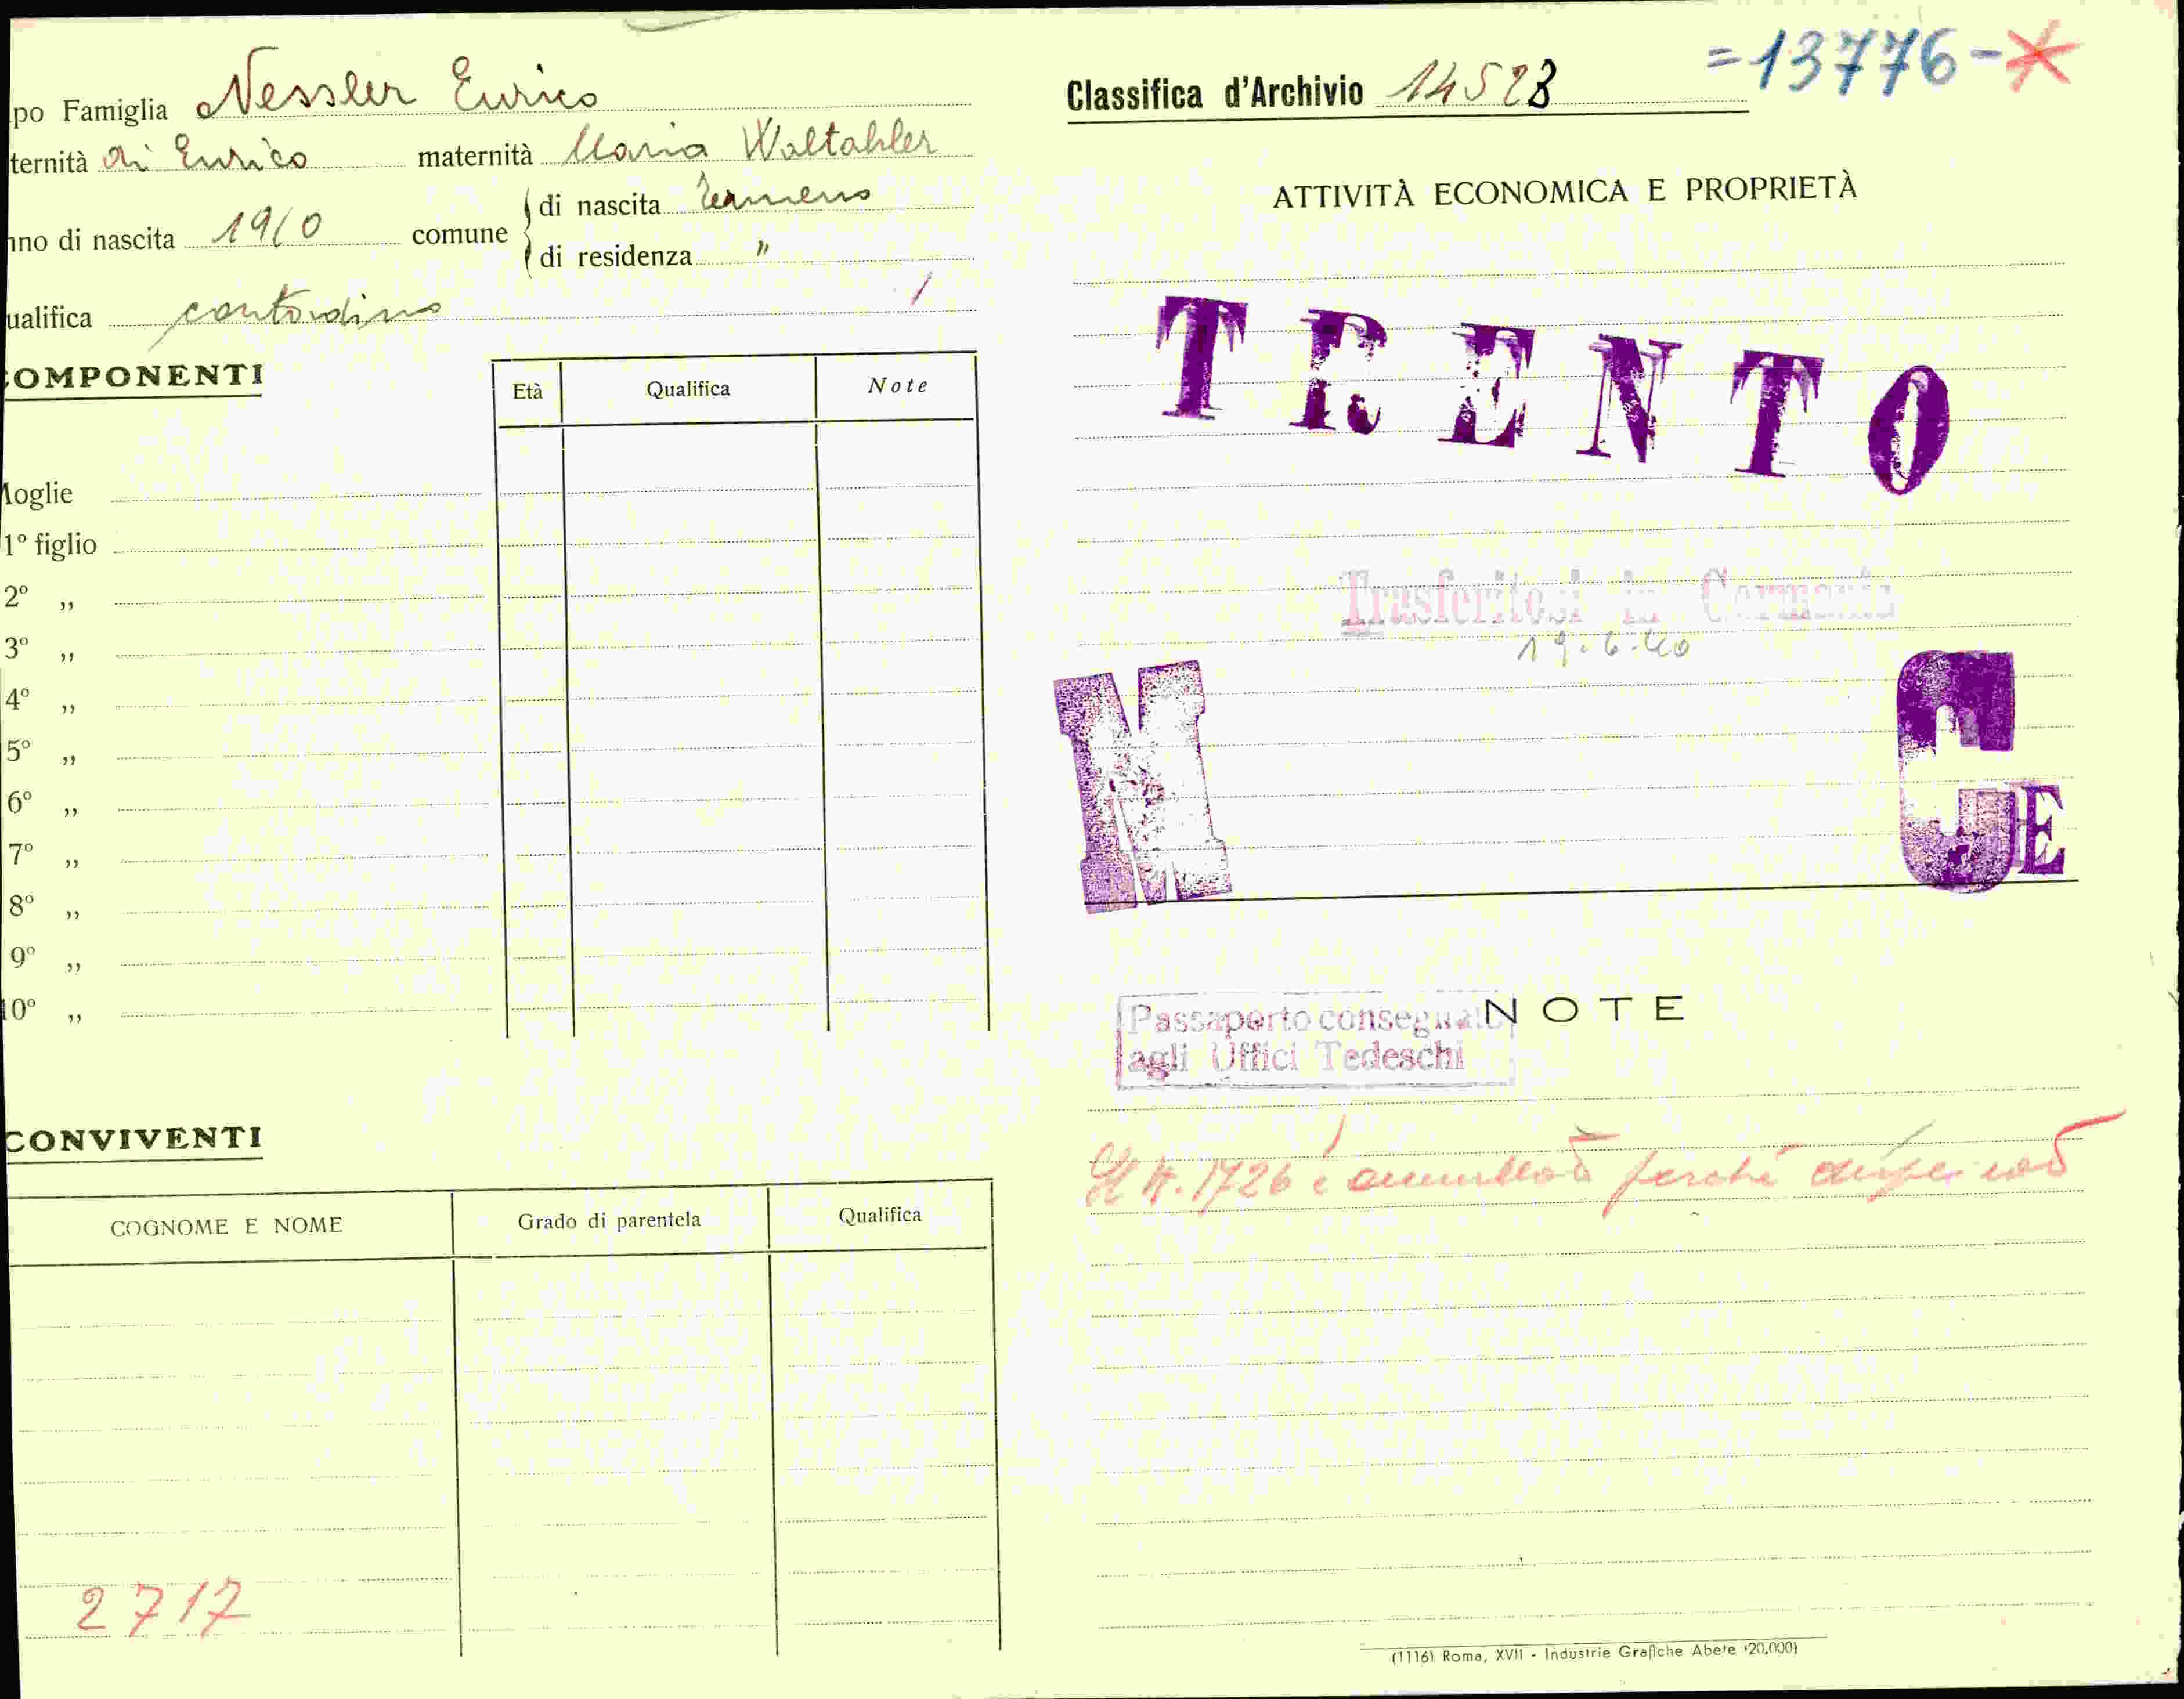 po Famiglia Nessler Enrico
ternità di Enrico maternità Maria Waltahler
nno di nascita 1910 comune di nascita Termeno
di residenza "
ualifica contadino
COMPONENTI
Età Qualifica Note
Moglie
1º figlio
2º „
3º „
4º „
5º „
6º „
7º „
8º „
9º „
10º „
CONVIVENTI
COGNOME E NOME Grado di parentela Qualifica
2717
Classifica d'Archivio 14523 =13776-*
ATTIVITÀ ECONOMICA E PROPRIETÀ
TRENTO
Trasferitosi in Germania
19.6.40
M G E
NOTE
Passaporto consegnato
agli Uffici Tedeschi
Il N. 1726 è annullato perché
(1116) Roma, XVII - Industrie Grafiche Abete (20.000)